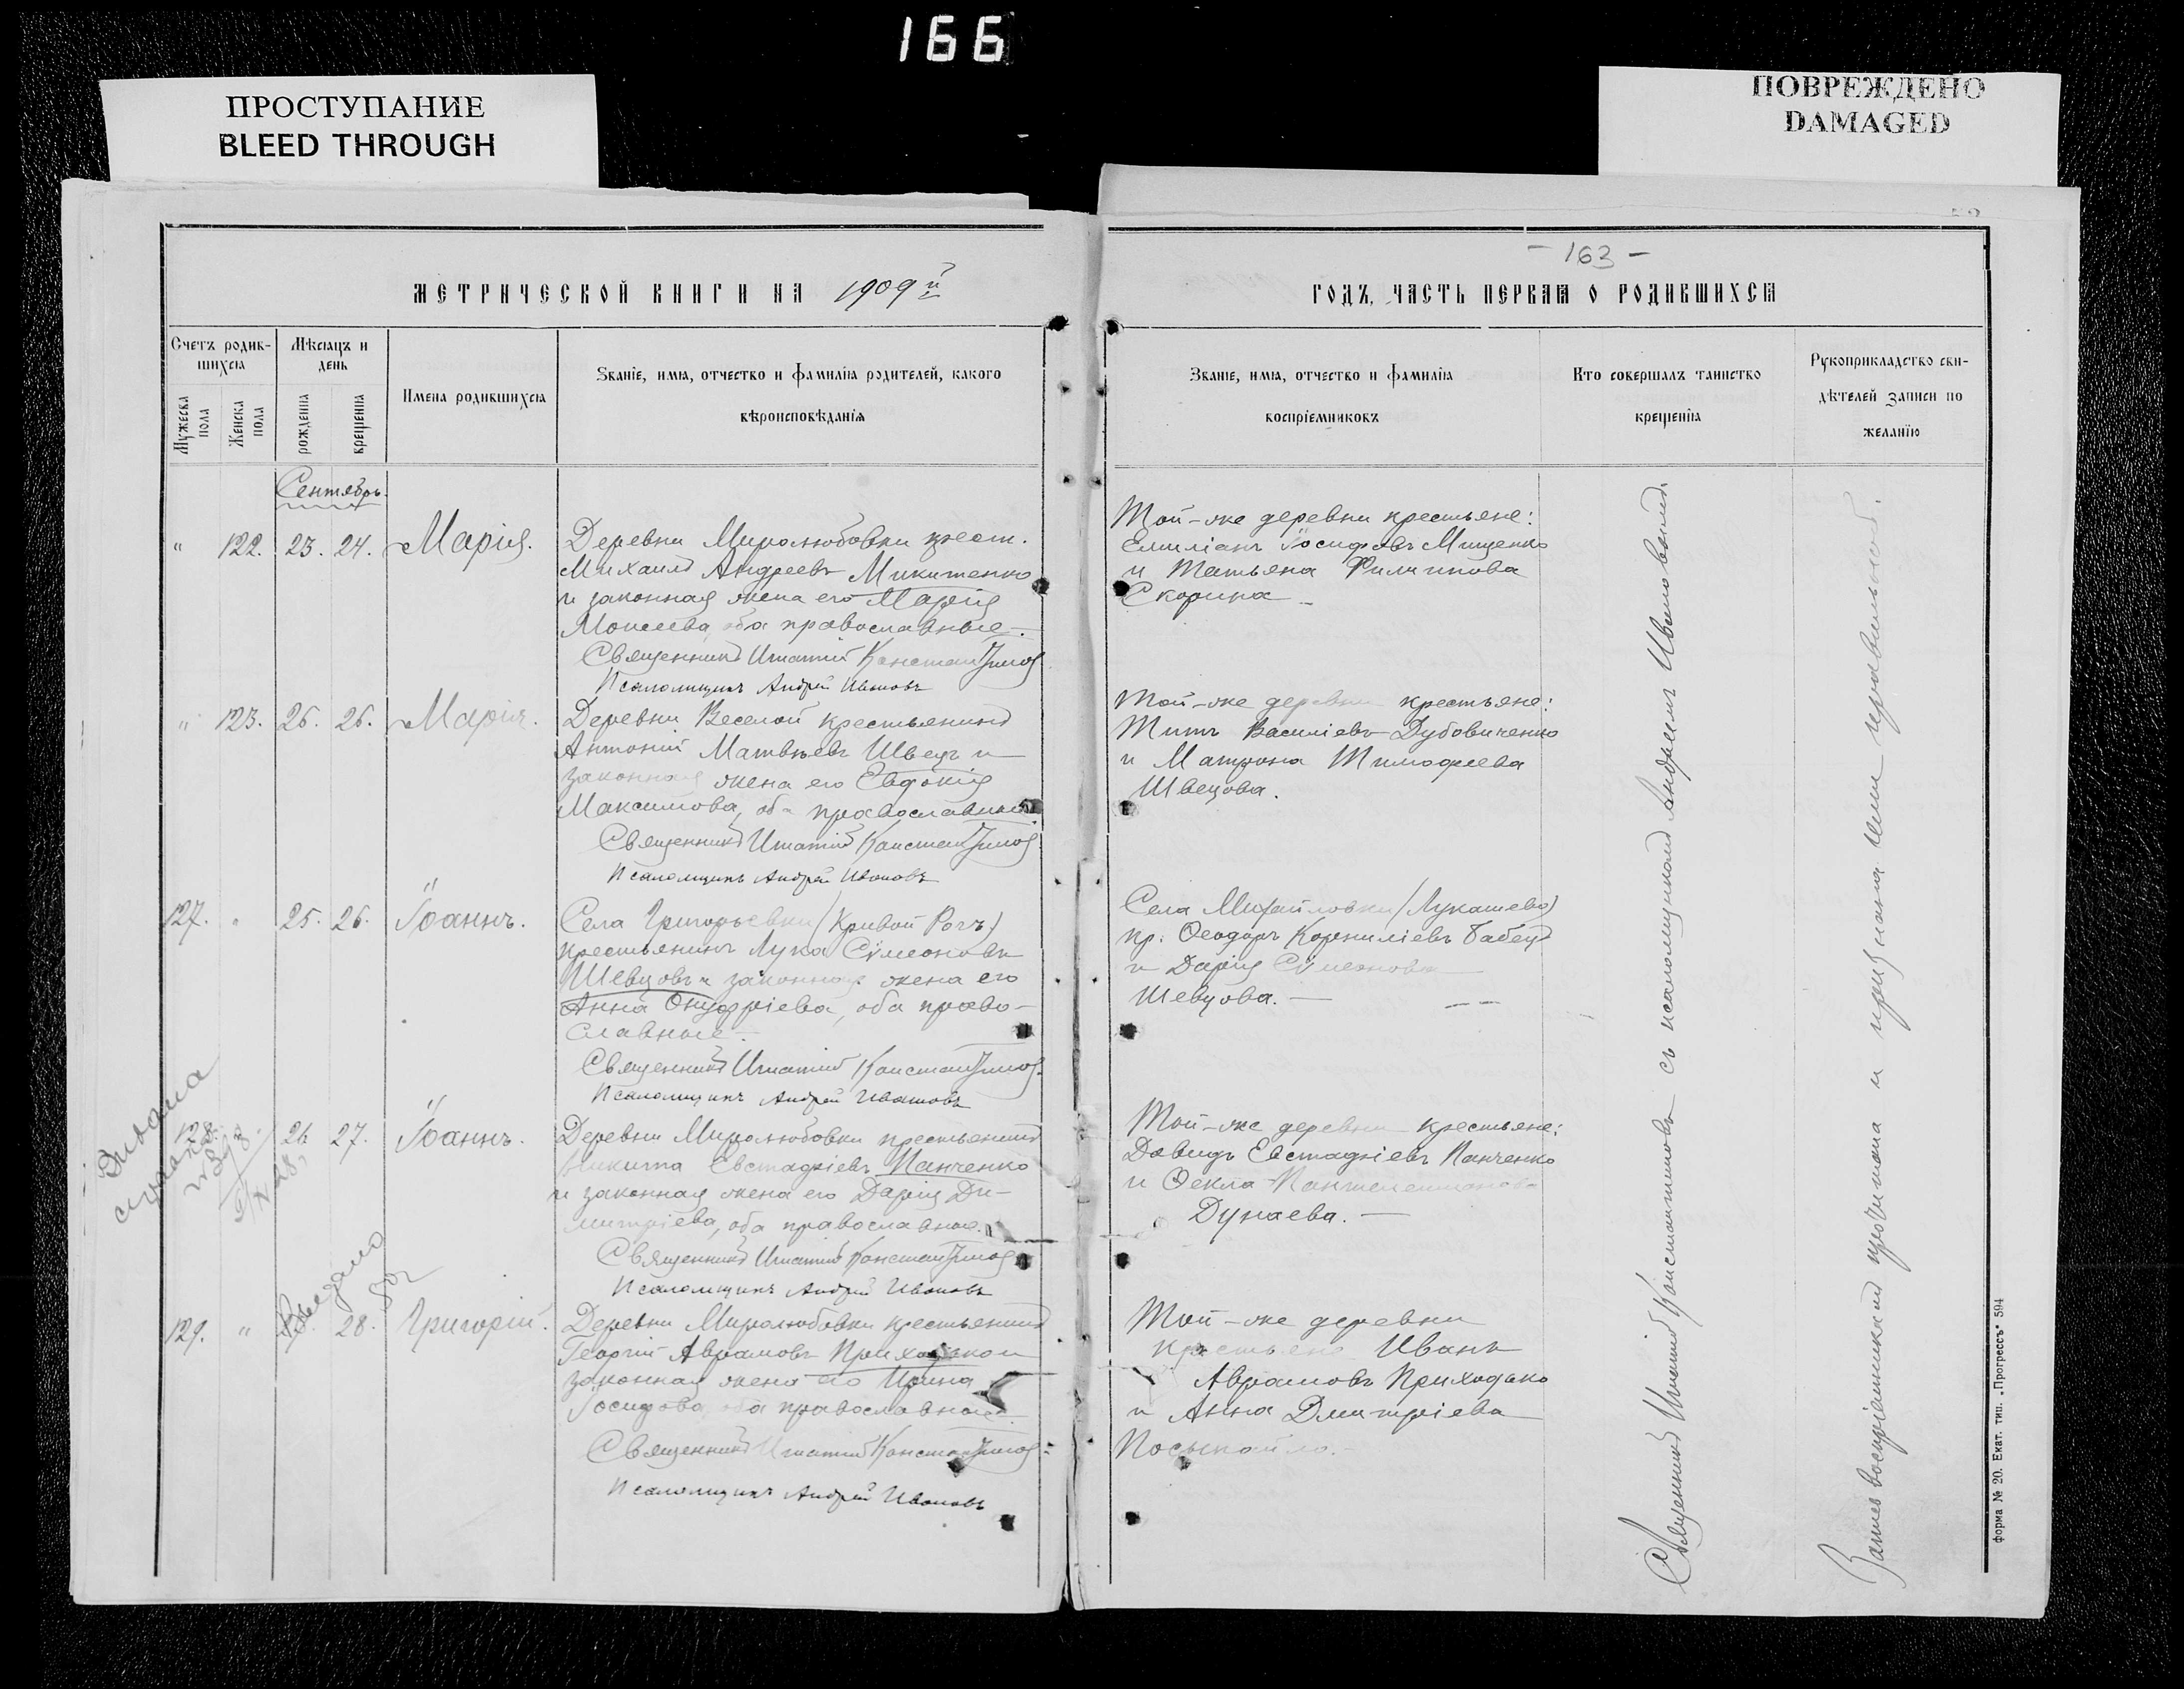 166
ПРОСТУПАНИЕ
BLEED THROUGH
ПОВРЕЖДЕНО
DAMAGED
МЕТРИЧЕСКОЙ КНИГИ НА 1909 й
Счетъ родив-
шихся
Мужеска
пола
Женска
пола
Мѣсяцъ и
день
рожденія
крещенія
Имена родившихся
Званіе, имя, отчество и фамилія родителей, какого
вѣроисповѣданія
Сентябрь.
" 122. 23. 24. Марія.
Деревни Миролюбовки крест.
Михаилъ Андреевъ Микитенко
и законная жена его Марія
Моисеева, оба православные.
Священникъ Игнатій Константиновъ
Псаломщикъ Андрей Ивановъ
" 123. 25. 26. Марія.
Деревни Веселой крестьянинъ
Антоній Матвѣевъ Швецъ и
законная жена его Евдокія
Максимова, оба православные
Священникъ Игнатій Константиновъ
Псаломщикъ Андрей Ивановъ
127. " 25. 26. Іоаннъ.
Села Григорьевки (Кривой Рогъ)
крестьянинъ Лука Сѵмеоновъ
Шевцовъ и законная жена его
Анна Онуфріева, оба право-
славные.
Священникъ Игнатій Константиновъ
Псаломщикъ Андрей Ивановъ
128. 26 27. Іоаннъ.
Деревни Миролюбовки крестьянинъ
Никита Евстафіевъ Панченко
и законная жена его Дарія Ди-
митріева, оба православные.
Священникъ Игнатій Константиновъ
Псаломщикъ Андрей Ивановъ
129. " 28. Григорій.
Деревни Миролюбовки крестьянинъ
Георгій Аврамовъ Приходько и
законная жена его Ирина
Іосифова, оба православные.
Священникъ Игнатій Константиновъ
Псаломщикъ Андрей Ивановъ
- 163 -
ГОДЪ, ЧАСТЬ ПЕРВАЯ О РОДИВШИХСЯ
Званіе, имя, отчество и фамилія
воспріемниковъ
Кто совершалъ таинство
крещенія
Рукоприкладство сви-
дѣтелей записи по
желанію
Той-же деревни крестьяне:
Емиліанъ Іосифовъ Мищенко
и Татьяна Филиппова
Скорина
Той-же деревни крестьяне:
Титъ Василіевъ Дубовиченко
и Матрона Тимофеева
Швецова.
Села Михайловки (Лукашево)
кр. Ѳеодоръ Корниліевъ Бабецъ
и Дарія Сѵмеонова
Шевцова.
Той-же деревни крестьяне:
Давидъ Евстафіевъ Панченко
и Ѳекла Пантелеимонова
Дунаева.
Той-же деревни
крестьяне Иванъ
Аврамовъ Приходько
и Анна Дмитріева
Посыпайло.
Священникъ Игнатій Константиновъ съ псаломщикомъ Андреемъ Ивановымъ.
Запись воспріемниками прочитана и признана ими правильной.
Форма № 20. Екат. тип. „Прогрессъ" 594